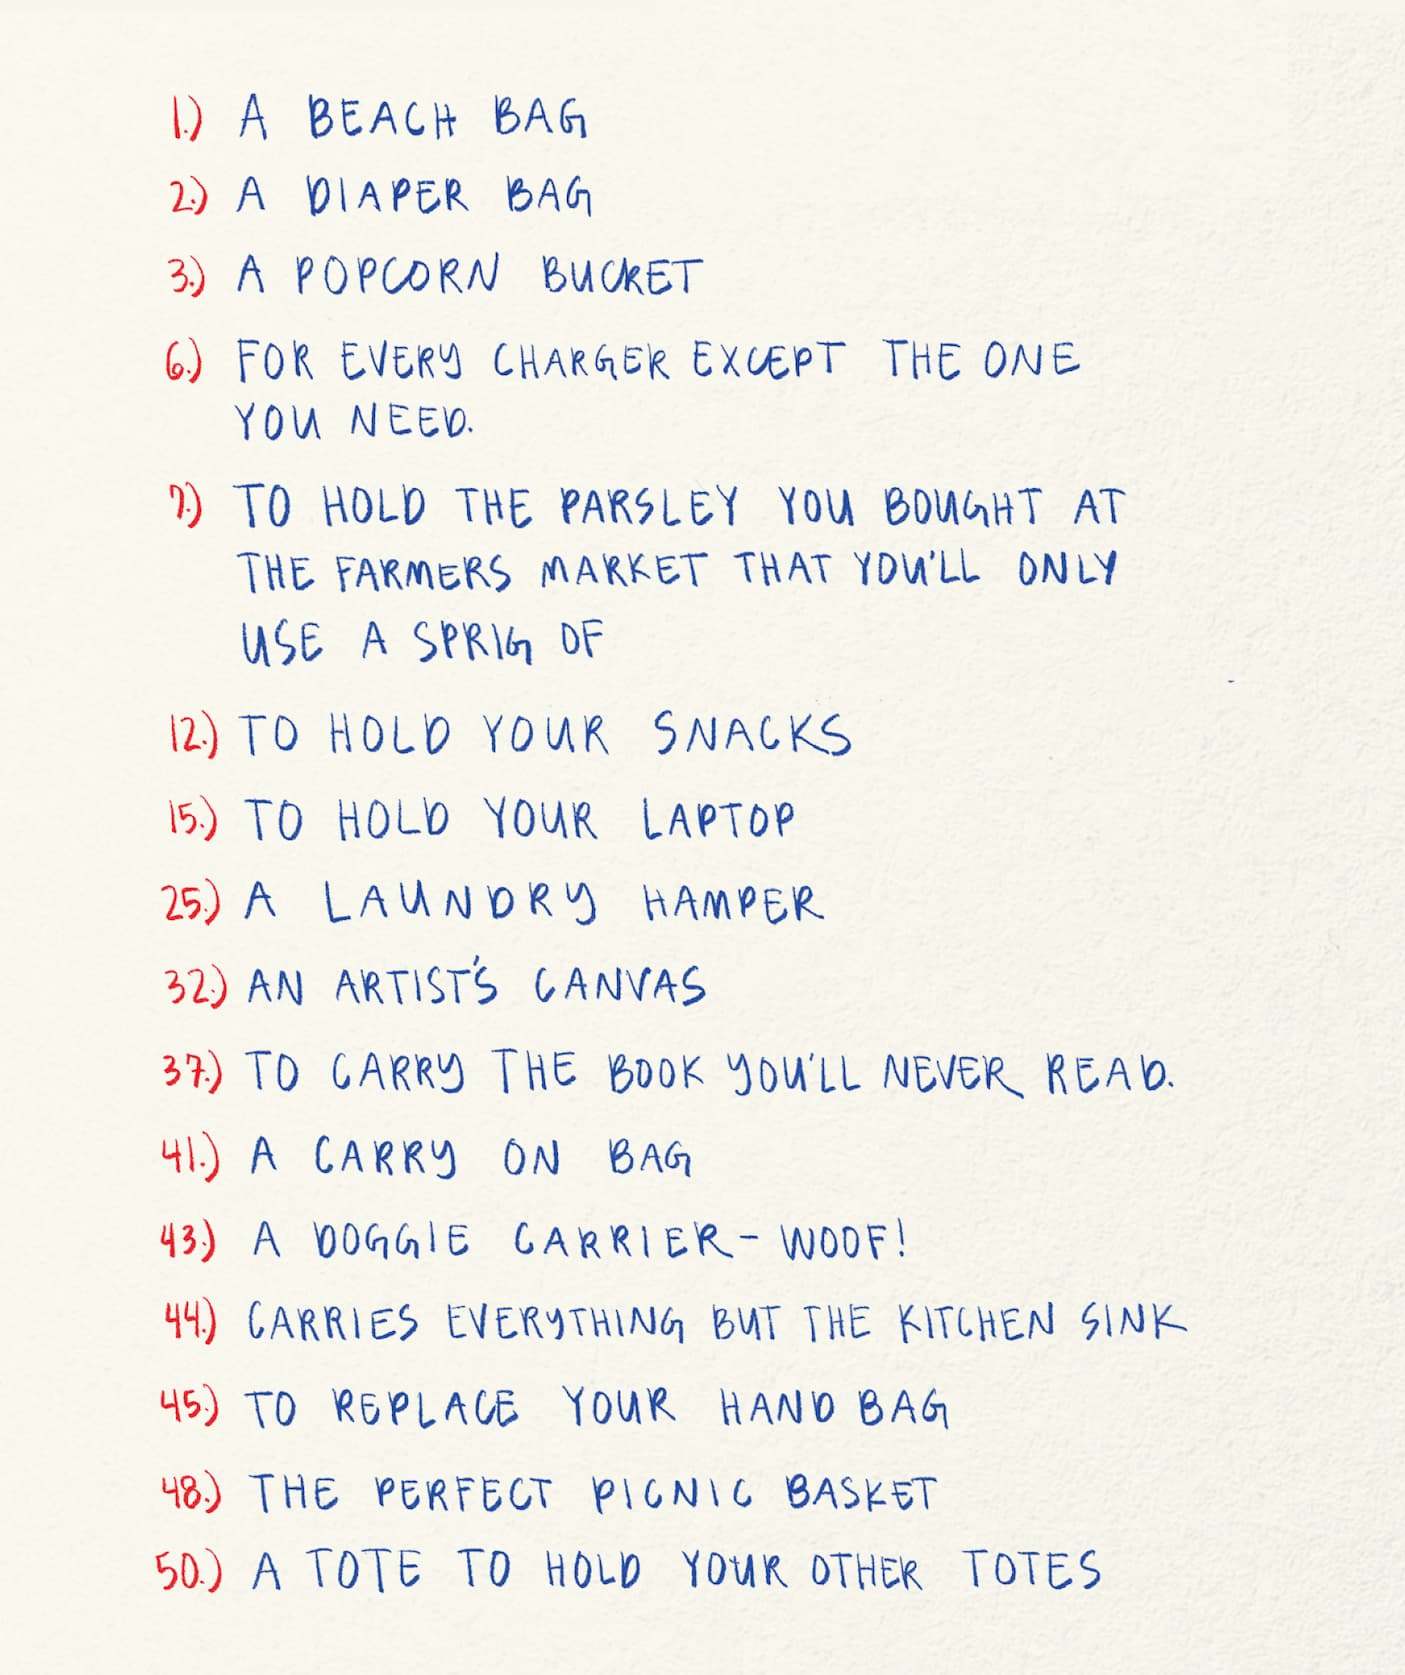 1.) A BEACH BAG
2.) A DIAPER BAG
3.) A POPCORN BUCKET
6.) FOR EVERY CHARGER EXCEPT THE ONE
YOU NEED.
7.) TO HOLD THE PARSLEY YOU BOUGHT AT
THE FARMERS MARKET THAT YOU'LL ONLY
USE A SPRIG OF
12.) TO HOLD YOUR SNACKS
15.) TO HOLD YOUR LAPTOP
25.) A LAUNDRY HAMPER
32.) AN ARTIST'S CANVAS
37.) TO CARRY THE BOOK YOU'LL NEVER READ.
41.) A CARRY ON BAG
43.) A DOGGIE CARRIER - WOOF!
44.) CARRIES EVERYTHING BUT THE KITCHEN SINK
45.) TO REPLACE YOUR HAND BAG
48.) THE PERFECT PICNIC BASKET
50.) A TOTE TO HOLD YOUR OTHER TOTES